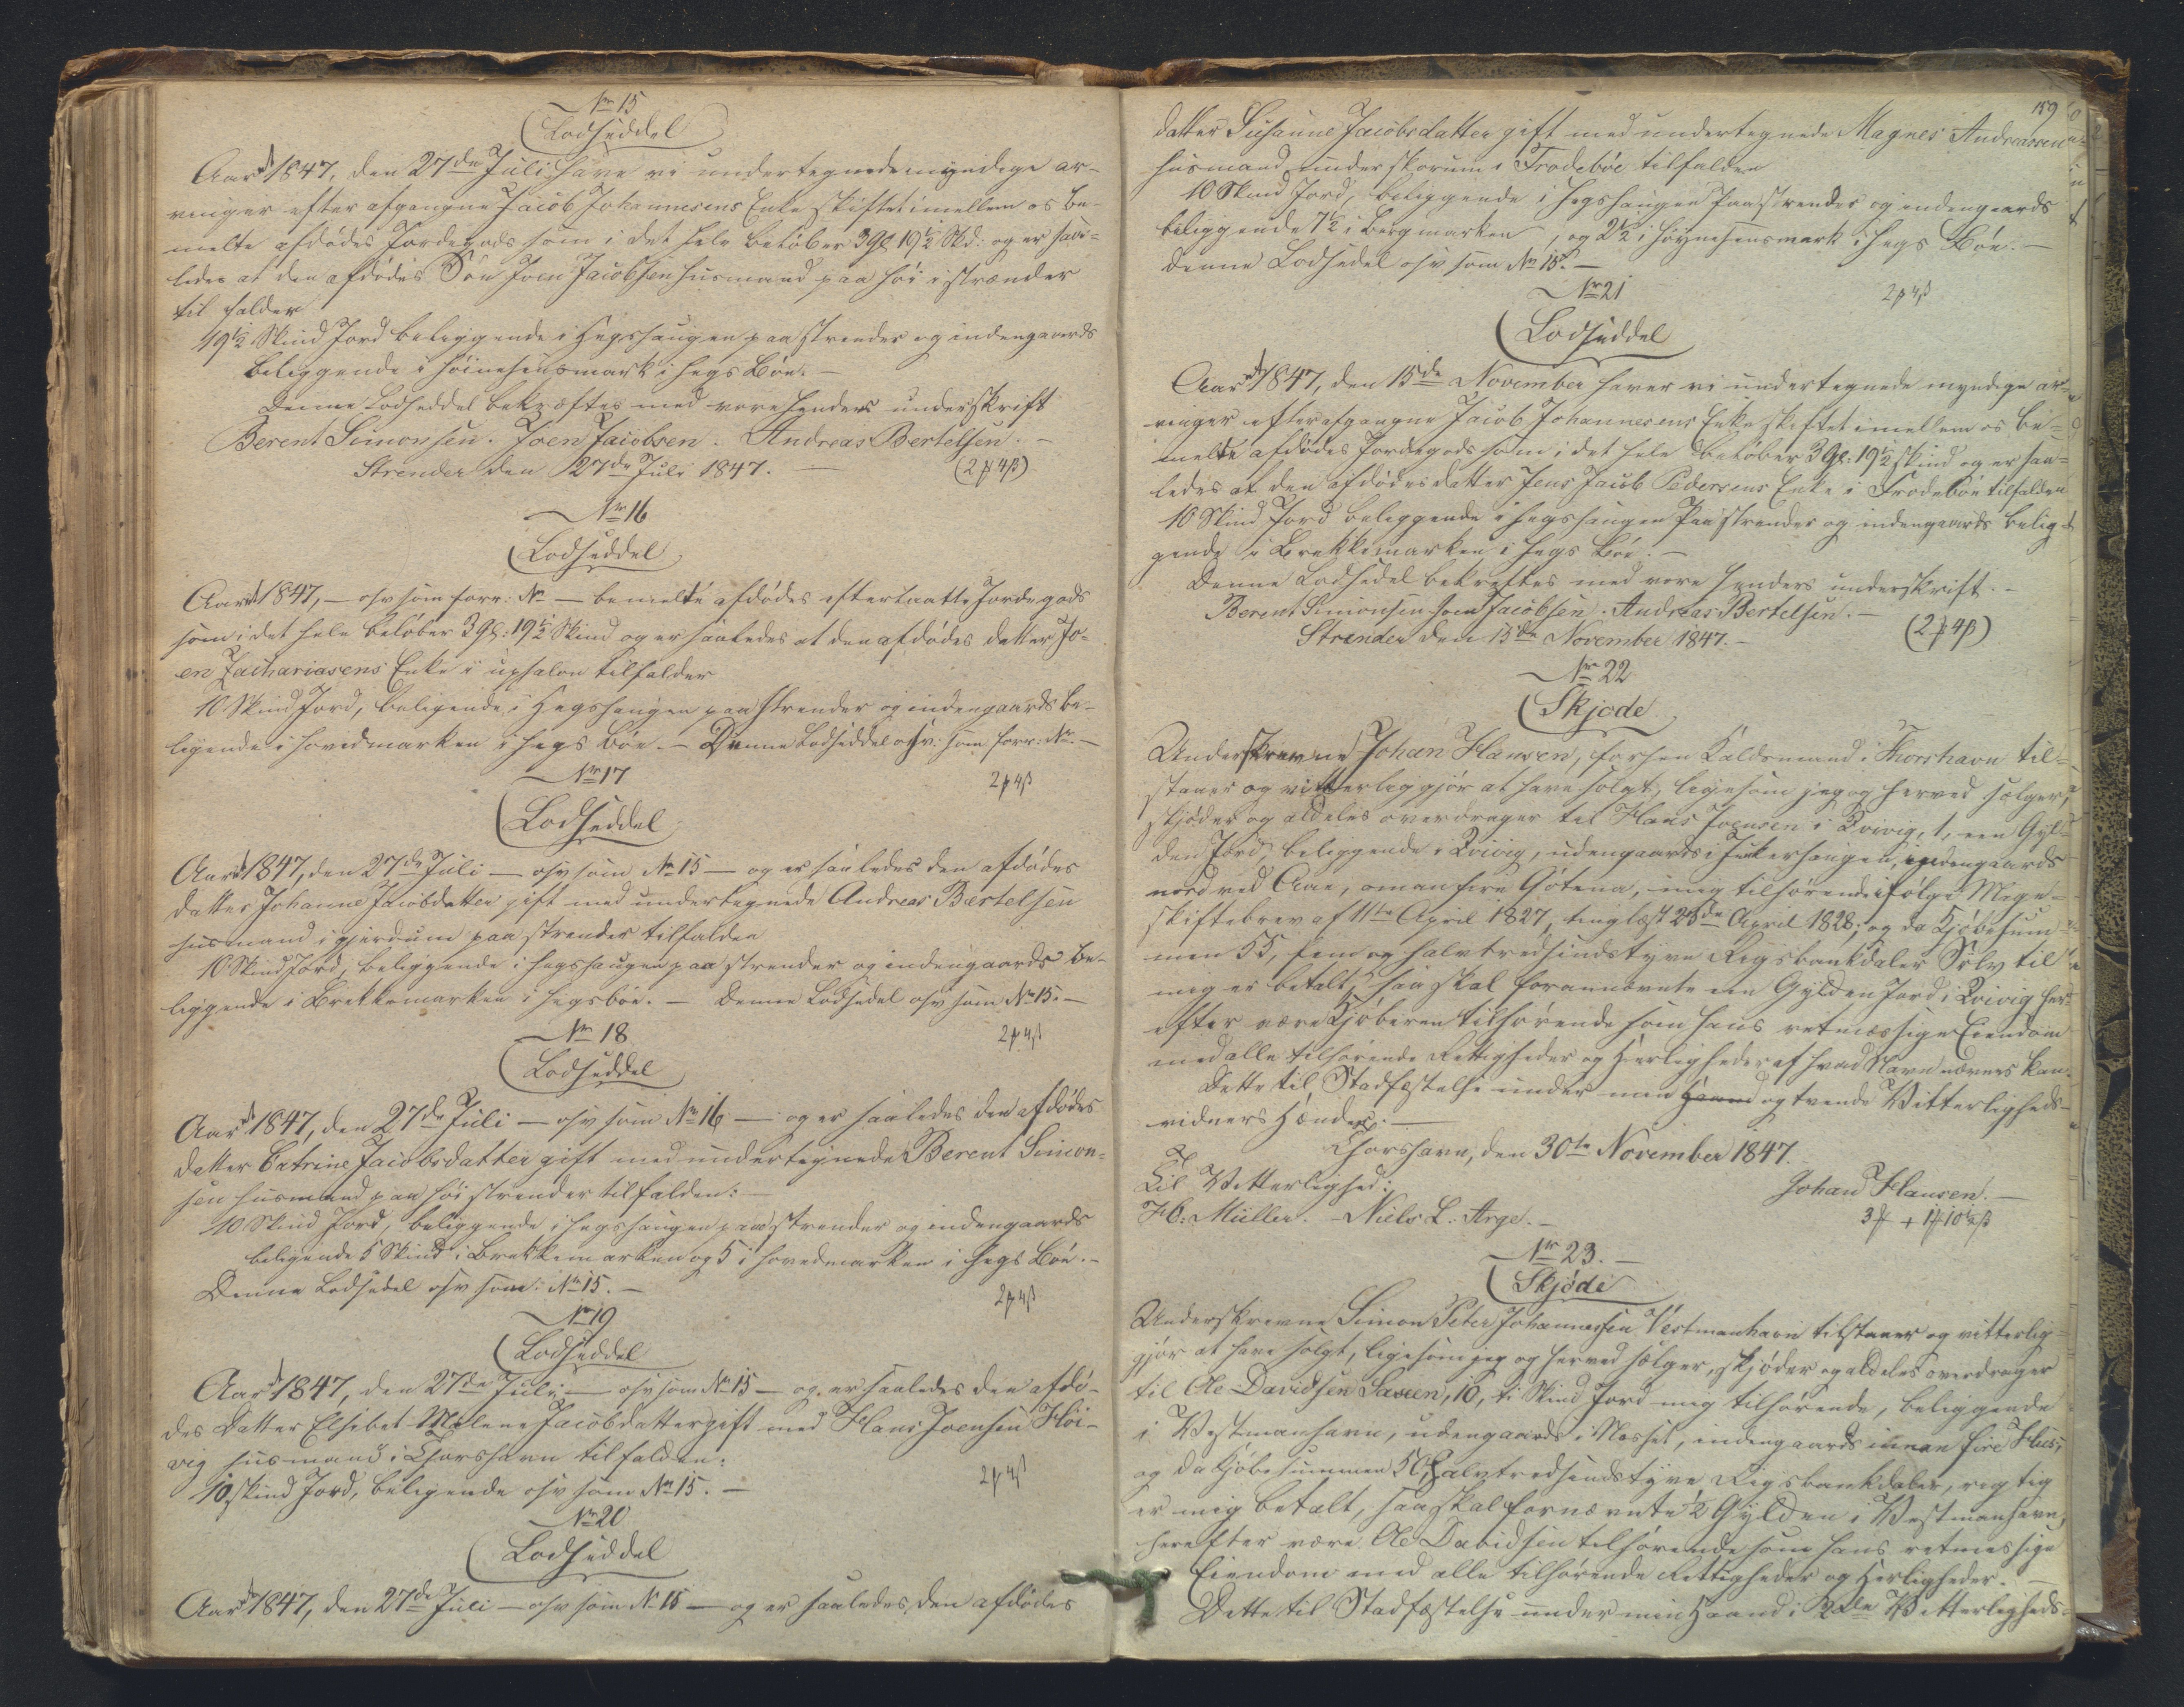 Nr 15
Lodseddel
Aar 1847, den 27de Juli have vi undertegnede myndige ar-
vinger efter afgangne Jacob Johannesens Enke skiftet imellem os be-
melte afdødes Jordegods som i det hele beløber 3 Gl 19½ Skd: og er saa-
ledes at den afdødes Søn Joen Jacobsen husmand paa høi i strænder
til falder
19½ Skind Jord beliggende i Hegshaugen paa strender og indengaards
beliggende i Høinesensmark i hegs Bøe. —
Denne Lodseddel bekræftes med vore henders underskrift
Berent Simonsen. Joen Jacobsen. Andreas Bertelsen. —
Strender den 27de Juli 1847. — (2 ꝑ 4 ß)
Nr 16
Lodseddel
Aar 1847, — osv som forr: Nr — bemelte afdødes efterlaatte Jordegods
som i det hele beløber 3 Gl: 19½ Skind og er saaledes at den afdødes datter Jo-
en Zachariasens Enke i upsalon tilfalder
10 Skind Jord, beligende i Hegshaugen paa strender og indengaards be-
ligende i hovedmarken i hegs bøe. — Denne Lodseddel osv: som forr: Nr. —
Nr 17
2 ꝑ 4 ß
Lodseddel
Aar 1847, den 27de Juli — osv som Nr 15 — og er saaledes den afdødes
datter Johanne Jacobsdatter gift med undertegnede Andreas Bertelsen
husmand i gjerdum paa strender tilfalden
10 Skind Jord, beliggende i hegshaugen paa strender og indengaards be-
liggende i Brekkemarken i hegsbøe. — denne Lodsedel osv som Nr 15. —
Nr 18
2 ꝑ 4 ß
Lodseddel
Aar 1847, den 27de Juli — osv som Nr 16 — og er saaledes den afdødes
datter Catrine Jacobsdatter gift med undertegnede Berent Simon-
sen husmand paa høi strender tilfalden: —
10 Skind Jord, beliggende i hegshaugen paa strender og indengaards
beligende 5 Skind i Brekkemarken og 5 i hovedmarken i hegs Bøe. —
Denne Lodsedel osv som: Nr 15. —
2 ꝑ 4 ß
Nr 19
Lodseddel
Aar 1847, den 27de Juli — osv som Nr 15 — og er saaledes den afdø-
des Datter Elsebet Malene Jacobsdatter gift med Hans Joensen Høi-
vig husmand i Thorshavn tilfalden:
10 skind Jord, beligende osv som Nr 15. —
2 ꝑ 4 ß
Nr 20
Lodseddel
Aar 1847, den 27de Juli — osv som Nr 15 — og er saaledes, den afdødes
159
datter Susanne Jacobsdatter gift med undertegnede Magnes Andreassen
husmand under skorum i Frodebøe tilfalden
10 Skind Jord, beliggende i hegshaugen paa strender og indengaards
beliggende 7½ i Bergmarken, og 2½ i høynesensmark i hegs Bøe. —
denne Lodsedel osv som Nr 15. —
Nr 21
2 ꝑ 4 ß
Lodseddel
Aar 1847, den 15de November haver vi undertegnede myndige ar-
vinger efter afgangne Jacob Johannesens Enke skiftet imellem os be-
melte afdødes Jordegods som i det hele beløber 3 Gl: 19½ skind og er saa-
ledes at den afdødes datter Jens Jacob Pedersens Enke i Frodebøe tilfalden
10 Skind Jord beliggende i hegshaugen Paa strender og indengaards belig-
gende i Brekkemarken i hegs Bøe. —
Denne Lodsedel bekræftes med vore henders underskrift. —
Berent Simonsen Joen Jacobsen. Andreas Bertelsen. —
Strender den 15de November 1847. — (2 ꝑ 4 ß)
Nr 22
Skjøde
Underskrevne Johan Hansen, forhen Kaldsmand i Thorshavn til-
staaer og vitterliggjør at have solgt, ligesom jeg og herved sælger,
skjøder og aldeles overdrager til Hans Joensen i Kvivig, 1, een Gyl-
den Jord, beliggende i Kvivig, udengaards i Inkerhaugen, indengaards
nord ved Aae, oman fire Gøtena, mig tilhørende ifølge Mage-
skiftebrev af 11te April 1827, tinglæst 25de April 1828; og da Kjøbesum-
men 55, fem og halvtredsindstyve Rigsbankdaler Sølv til
mig er betalt, saa skal forannævnte een Gylden Jord i Kvivig her-
efter være Kjøberen tilhørende som hans retmæssige Eiendom
med alle tilhørende Rettigheder og Herligheder af hvad Navn nævnes kan.
Dette til Stadfæstelse under min Haand og tvende Vitterligheds-
vidners Hænder. —
Thorshavn, den 30te November 1847.
Til Vitterlighed:
Johan Hansen. —
H C: Müller. — Niels L: Arge. —
3 ꝑ + 1 ꝑ 10½ ß
Nr 23. —
Skjøde
Underskrevne Simon Peter Johannessen Vestmanhavn tilstaaer og vitterlig-
gjør at have solgt, ligesom jeg og herved sælger, skjøder og aldeles overdrager
til Ole Davidsen Saxen, 10, ti Skind Jord mig tilhørende, beliggende
i Vestmanhavn, udengaards i Nesset, indengaards innan fire Huus,
og da Kjøbesummen 50, halvtredsindstyve Rigsbankdaler, rigtig
er mig betalt, saa skal fornævnte ½ Gylden i Vestmanhavn,
herefter være Ole Davidsen tilhørende som hans retmæssige
Eiendom med alle tilhørende Rettigheder og Herligheder. —
Dette til Stadfæstelse under min Haand i 2de Vitterligheds-